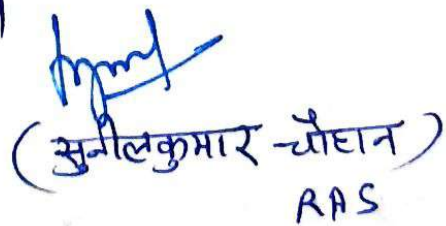 (सुनीलकुमार चौहान)
RAS